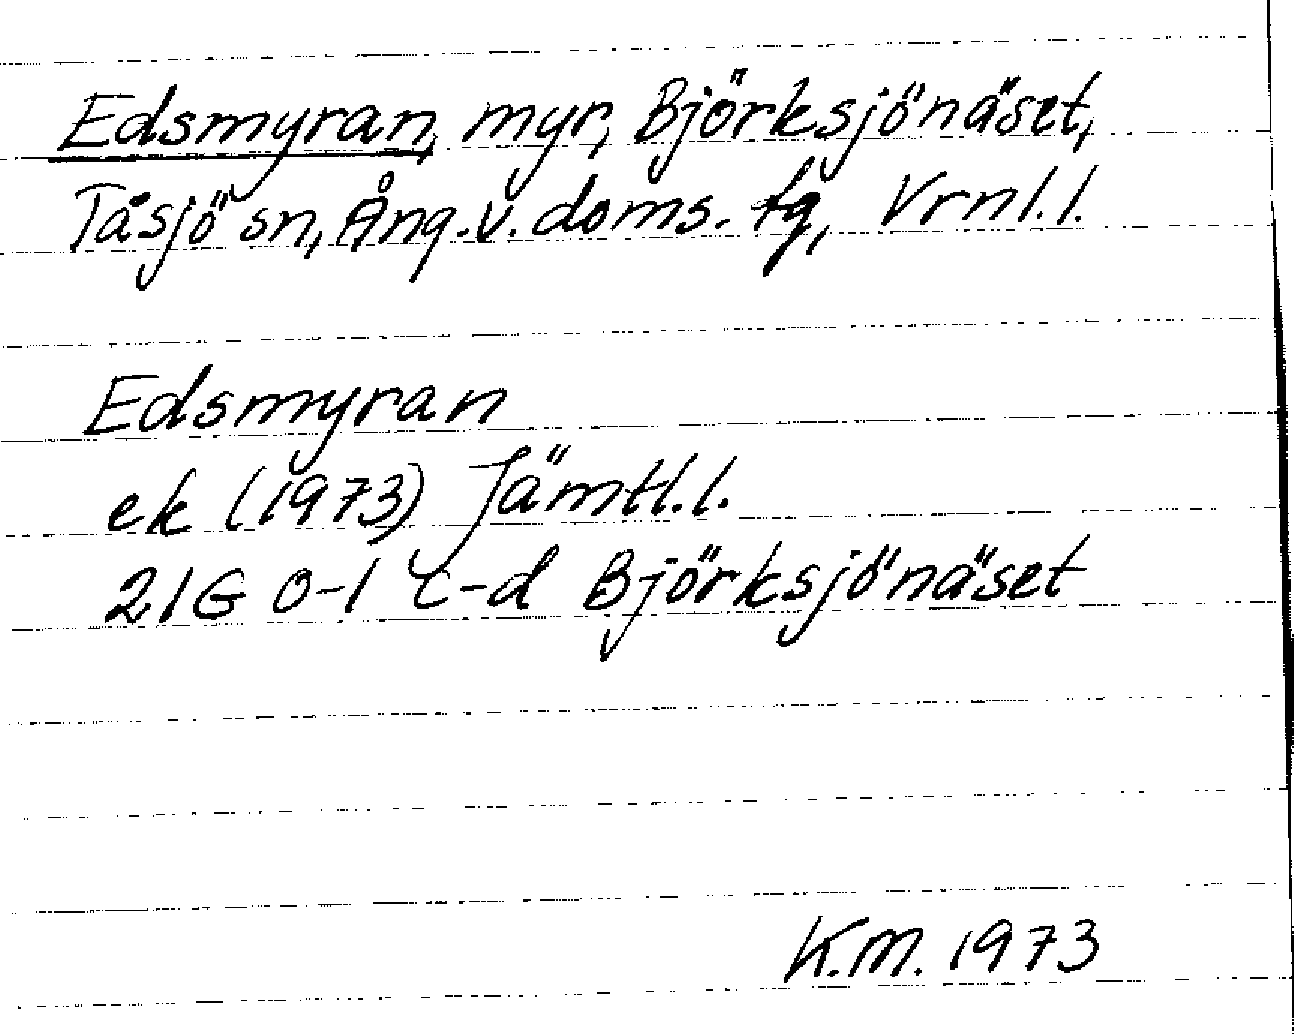 Edsmyran, myr, Björksjönäset,
Tåsjö sn, Ång.v. doms. fg, Vrnl.l.
Edsmyran
ek (1973) Jämtl.l.
21G 0-1 c-d Björksjönäset
K.M. 1973